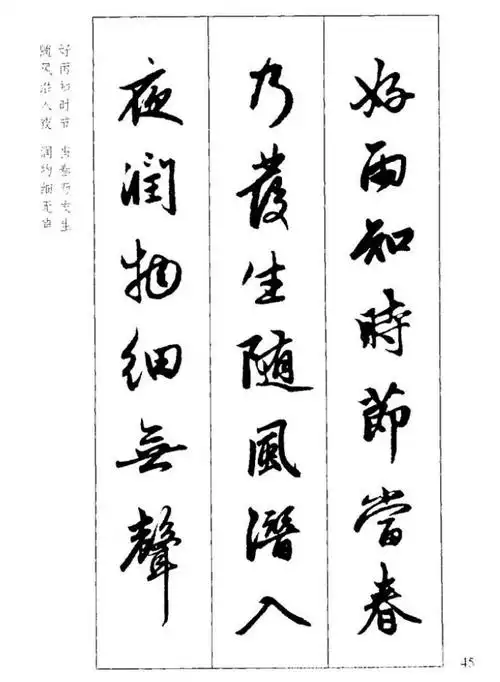 好雨知時節當春
乃發生随風潛入
夜潤物細無聲
好雨知时节 当春乃发生
随风潜入夜 润物细无声
45